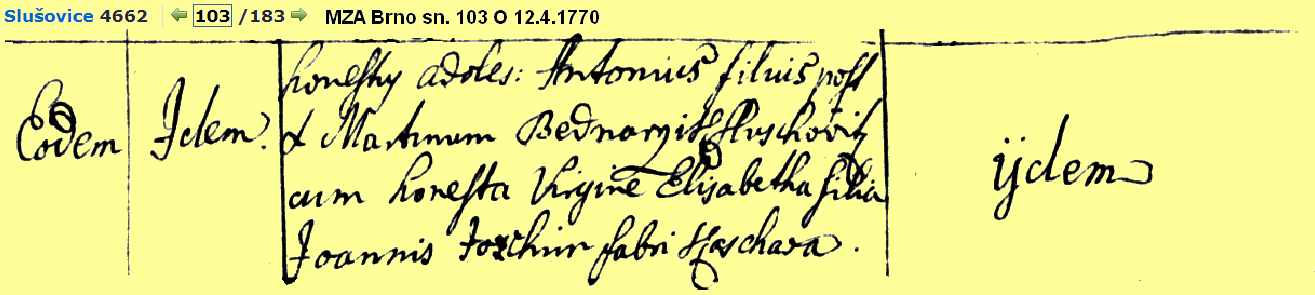 Slušovice 4662 103 /183 MZA Brno sn. 103 O 12.4.1770
honesty adoles: Antonius filius post
Eodem Idem. & Martinum Bednarzik Sluschovitz
cum honesta Virgine Elisabetha filia ijdem
Joannis fabri